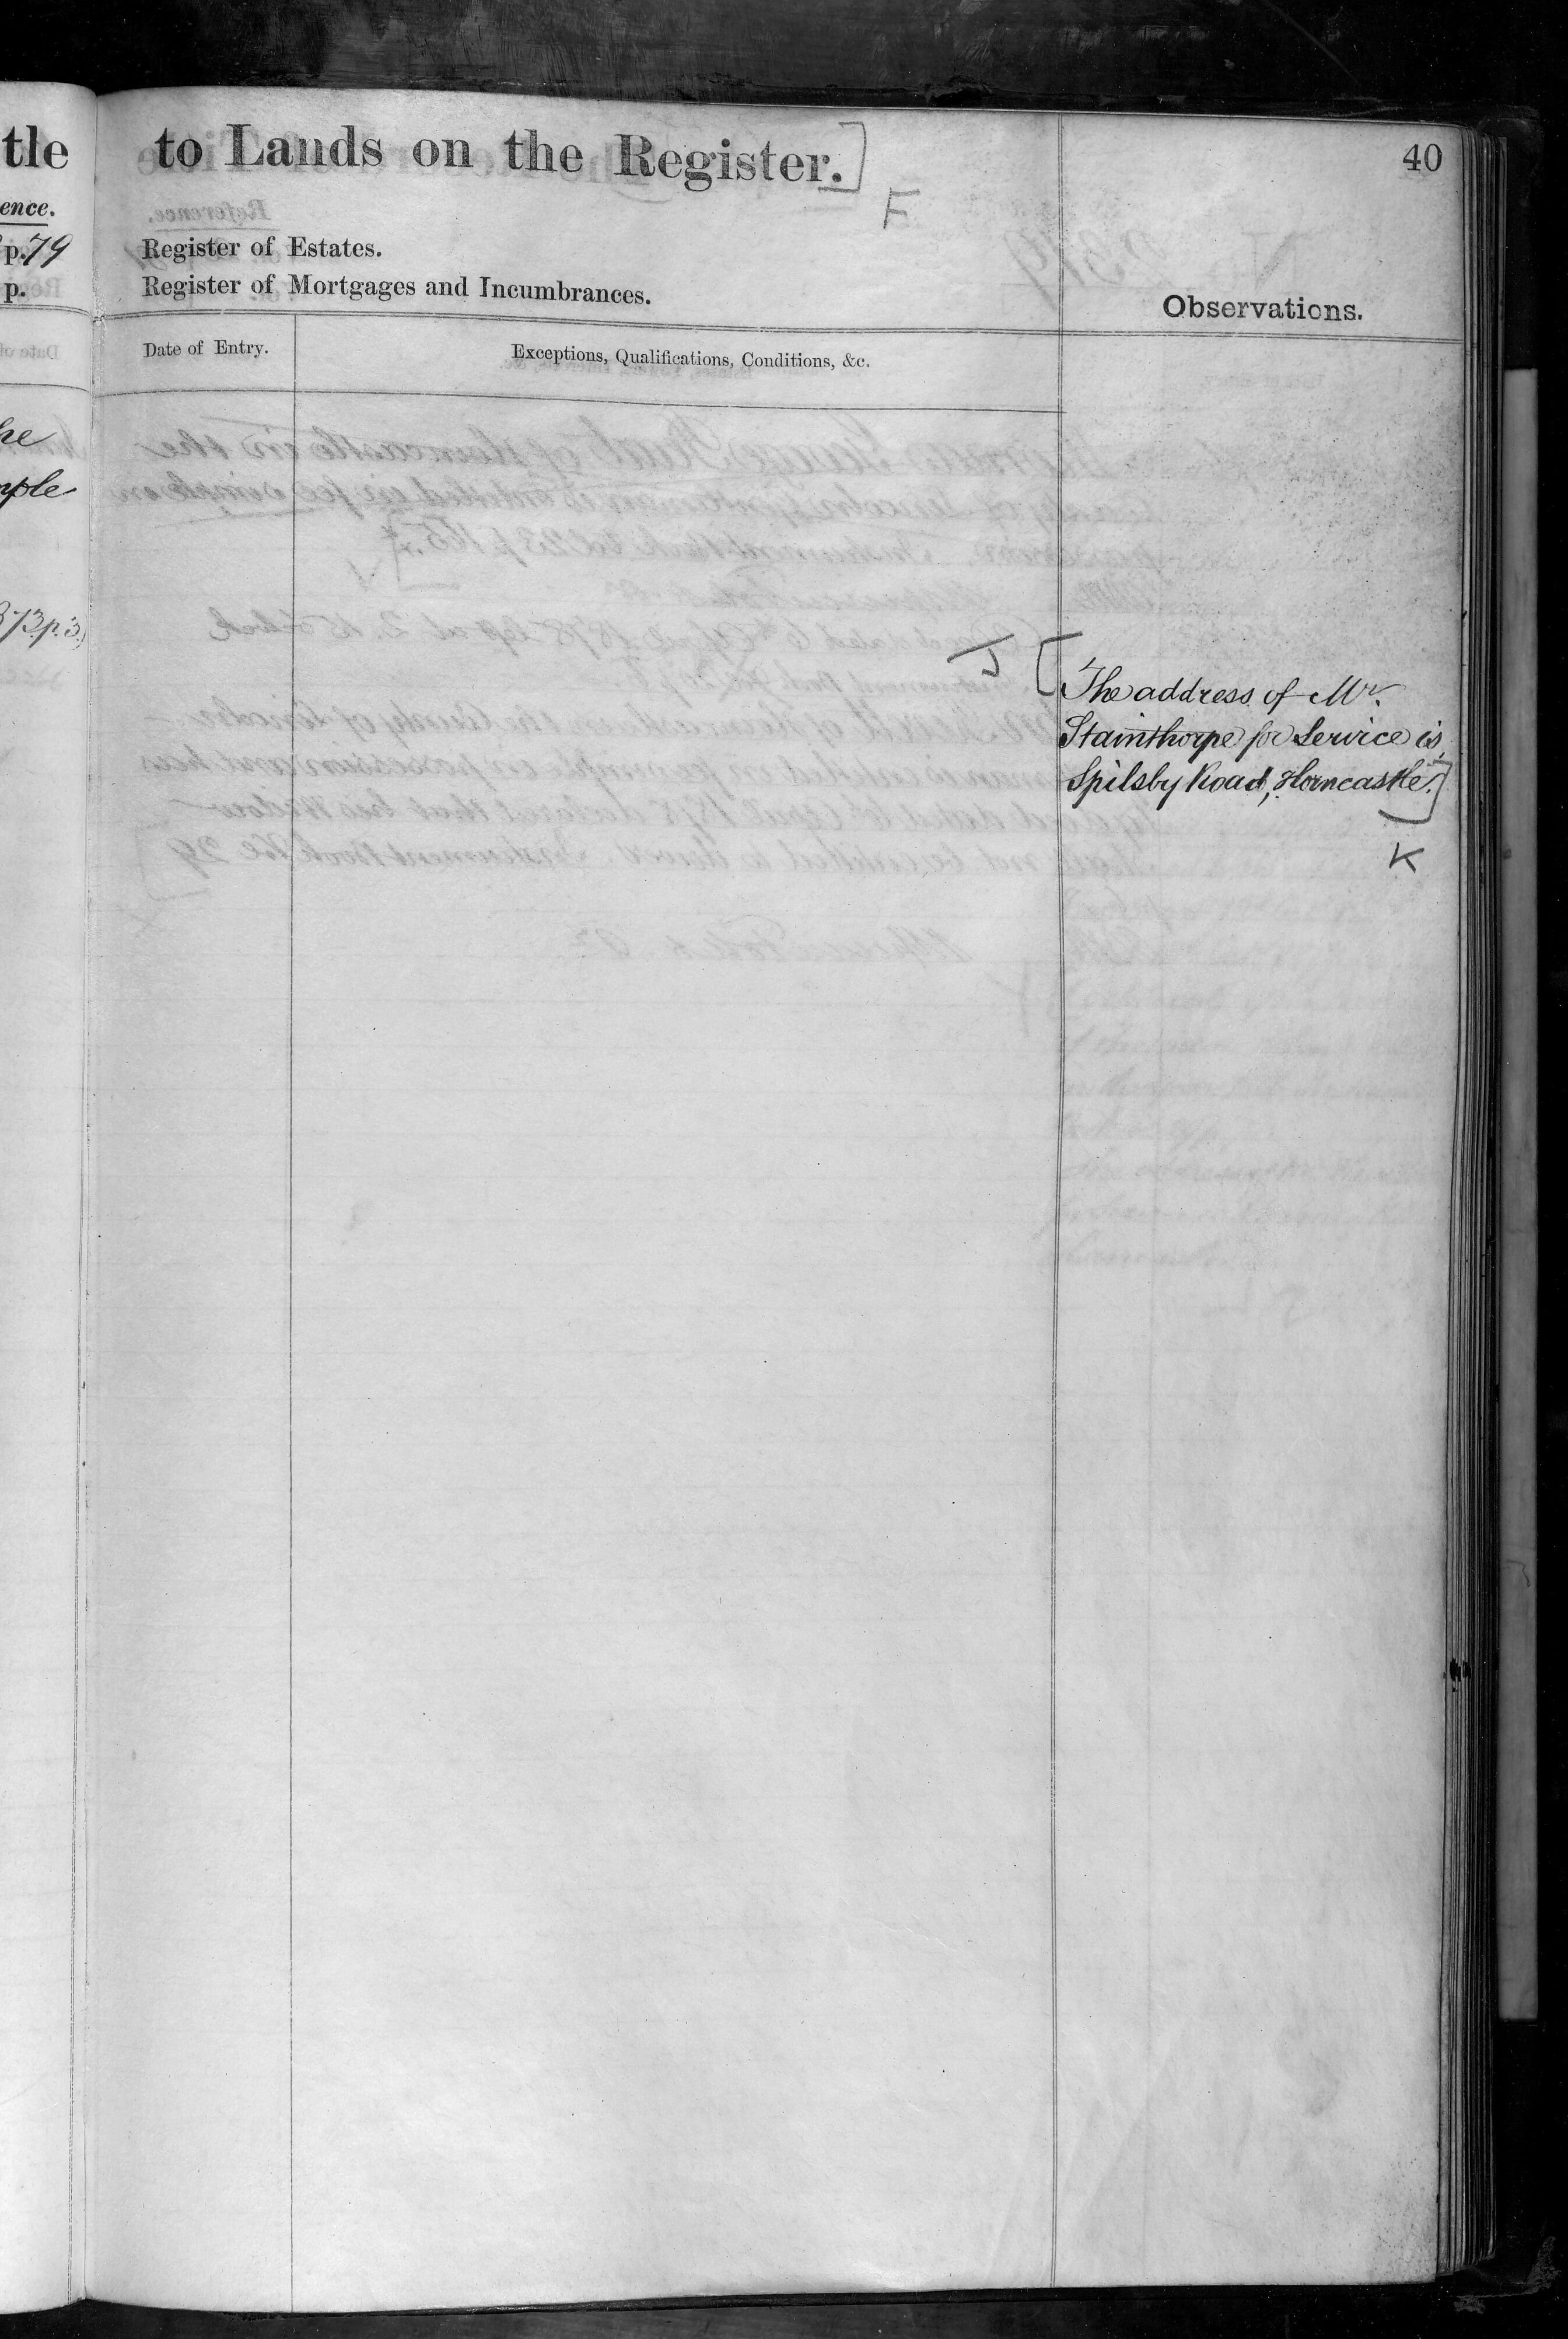 tle
ence.
p. 79
p.
he
mple
873. p. 3.
to Lands on the Register.]
F
40
Register of Estates.
Register of Mortgages and Incumbrances.
Observations.
Date of Entry.
Exceptions, Qualifications, Conditions, &c.
J [
The address of Mr.
Stainthorpe for Service is
Spilsby Road, Horncastle.]
K